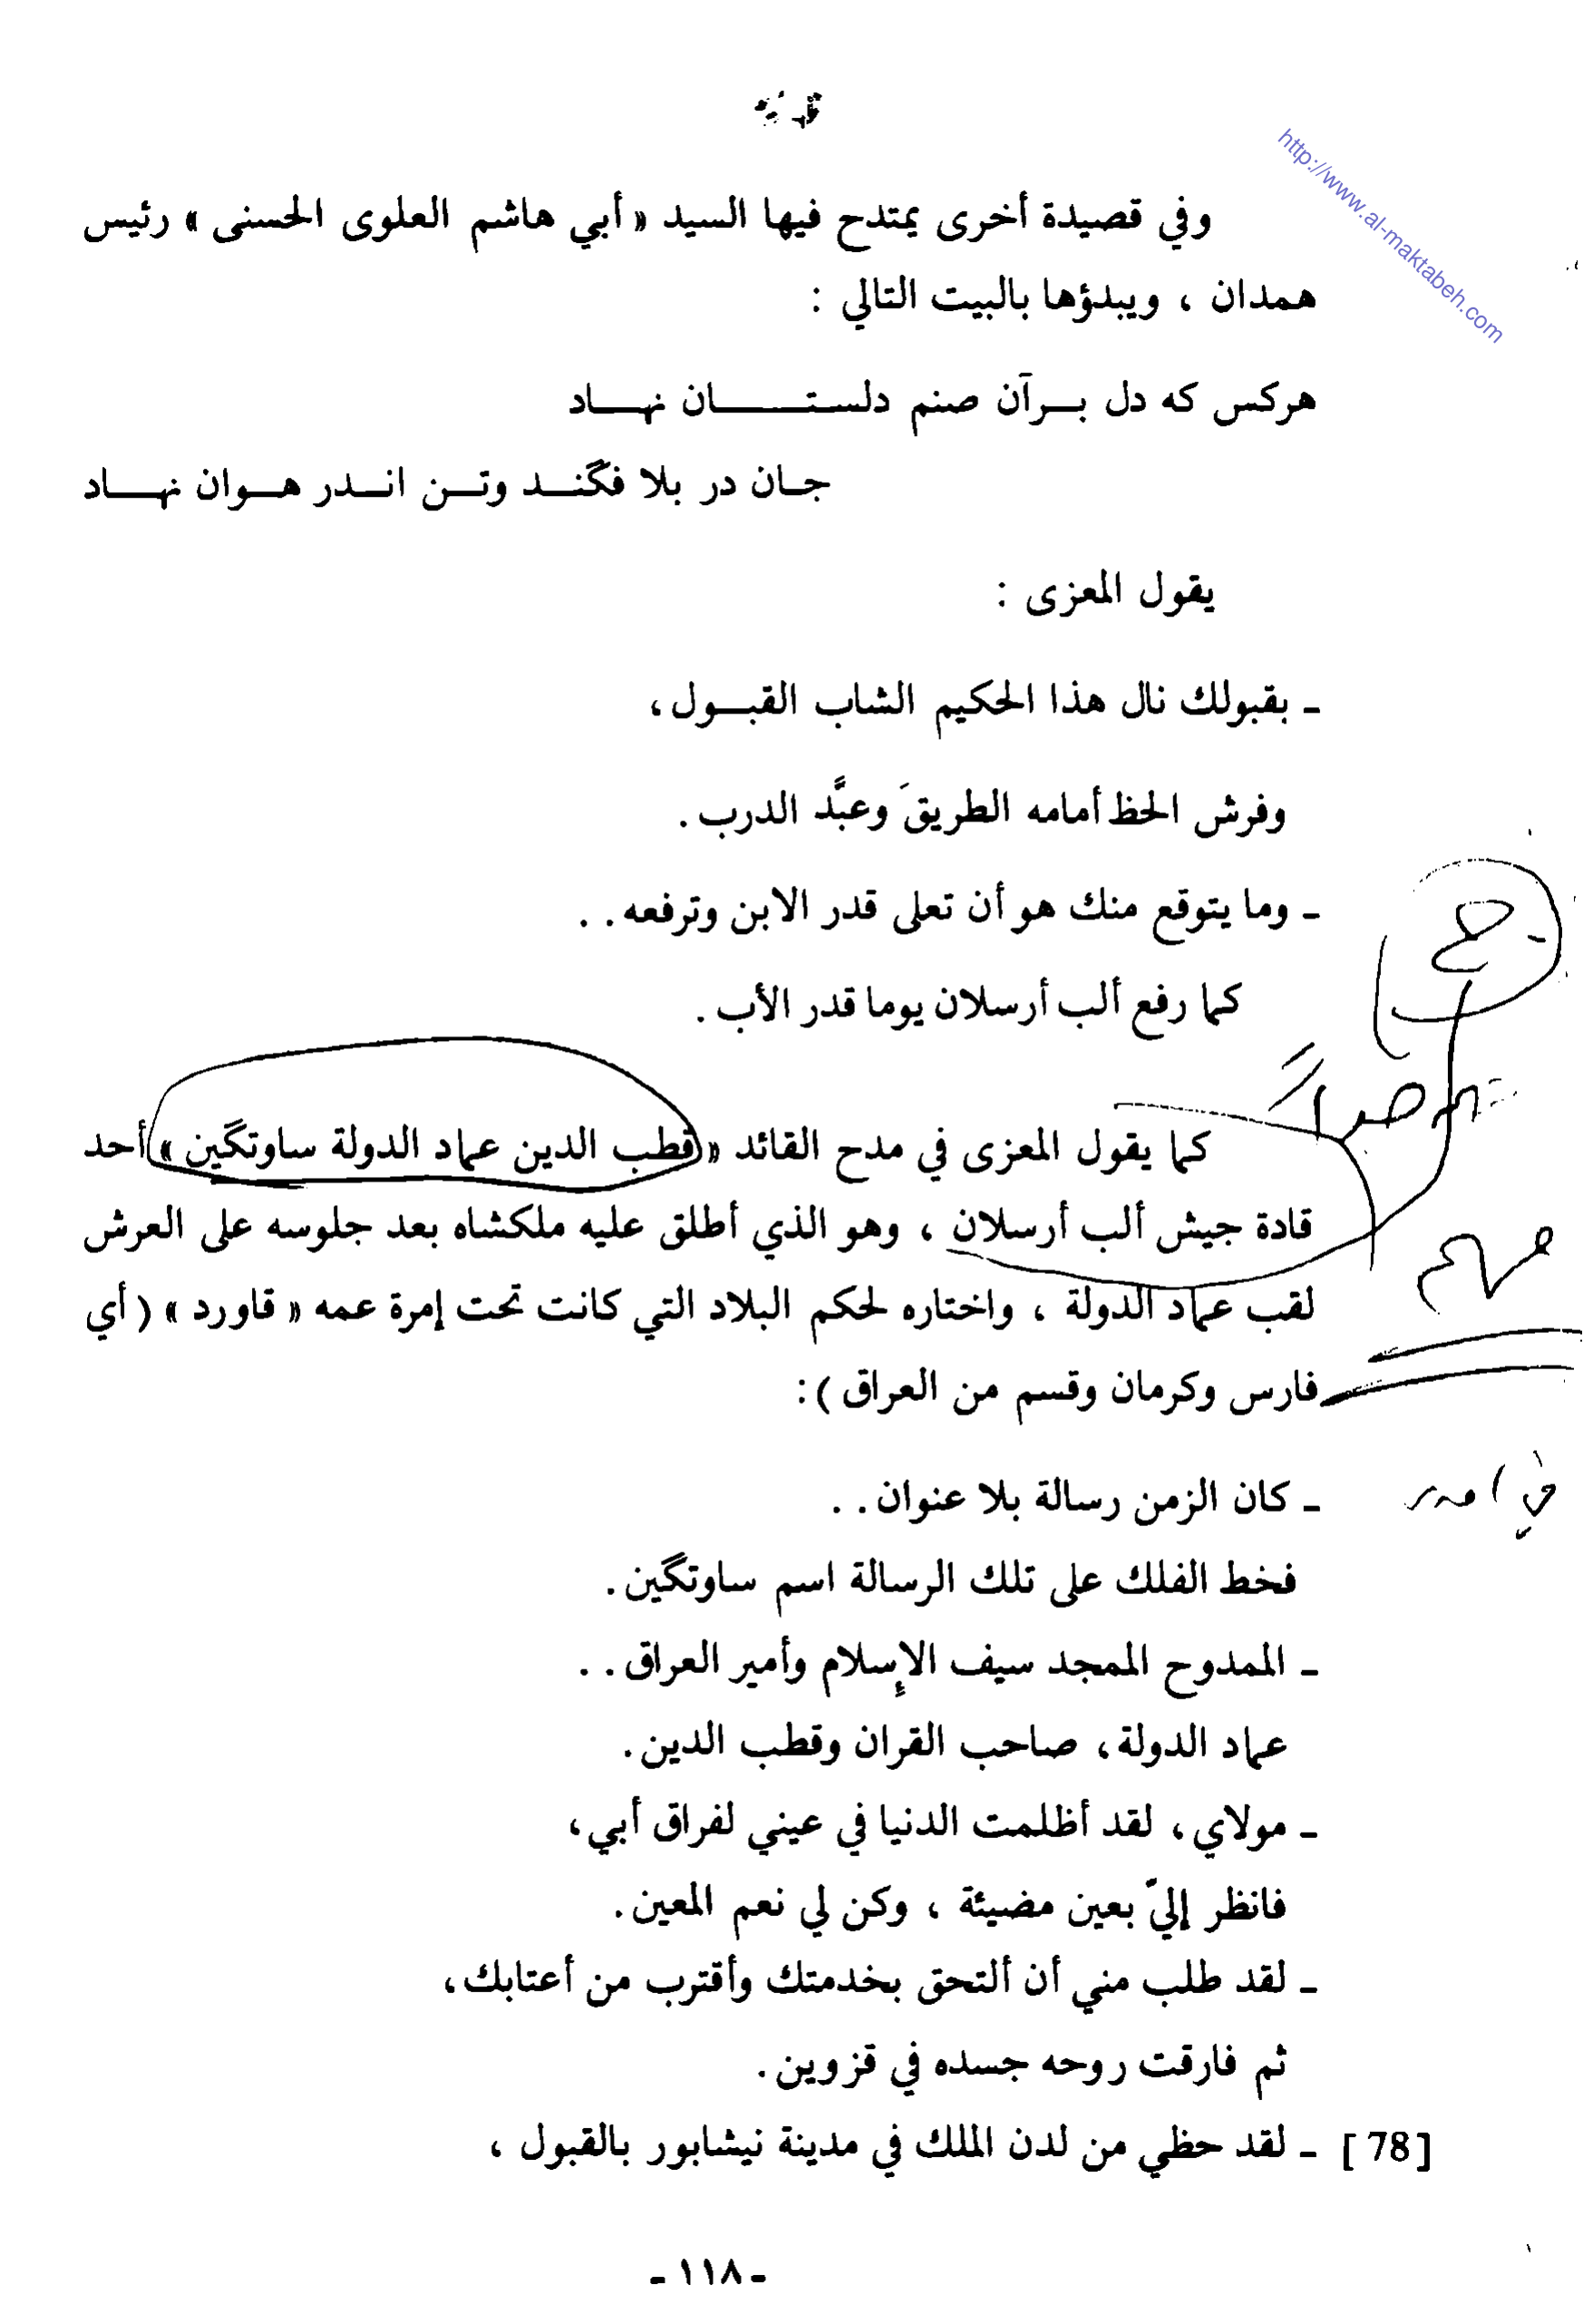 http://www.al-maktabeh.com
وفي قصيدة أخرى يمتدح فيها السيد « أبي هاشم العلوى الحسنى » رئيس
همدان ، ويبدؤها بالبيت التالي :
هركس كه دل بــرآن صنم دلستـــــــان نهــــاد
جــان در بلا فگنــد وتــن انــدر هــوان نهــــاد
يقول المعزى :
ـ بقبولك نال هذا الحكيم الشاب القبــول،
وفرش الحظ أمامه الطريقَ وعبَّد الدرب .
ـ وما يتوقع منك هو أن تعلى قدر الابن وترفعه . .
كما رفع ألب أرسلان يوما قدر الأب .
كما يقول المعزى في مدح القائد « قطب الدين عماد الدولة ساوتگين » أحد
قادة جيش ألب أرسلان ، وهو الذي أطلق عليه ملكشاه بعد جلوسه على العرش
لقب عماد الدولة ، واختاره لحكم البلاد التي كانت تحت إمرة عمه « قاورد » ( أي
فارس وكرمان وقسم من العراق ) :
ـ كان الزمن رسالة بلا عنوان . .
فخط الفلك على تلك الرسالة اسم ساوتگين .
ـ الممدوح الممجد سيف الإسلام وأمير العراق . .
عماد الدولة، صاحب القران وقطب الدين .
ـ مولاي، لقد أظلمت الدنيا في عيني لفراق أبي،
فانظر إليّ بعين مضيئة ، وكن لي نعم المعين .
ـ لقد طلب مني أن ألتحق بخدمتك وأقترب من أعتابك،
ثم فارقت روحه جسده في قزوين .
[ 78 ] ـ لقد حظي من لدن الملك في مدينة نيشابور بالقبول ،
ـ ١١٨ ـ